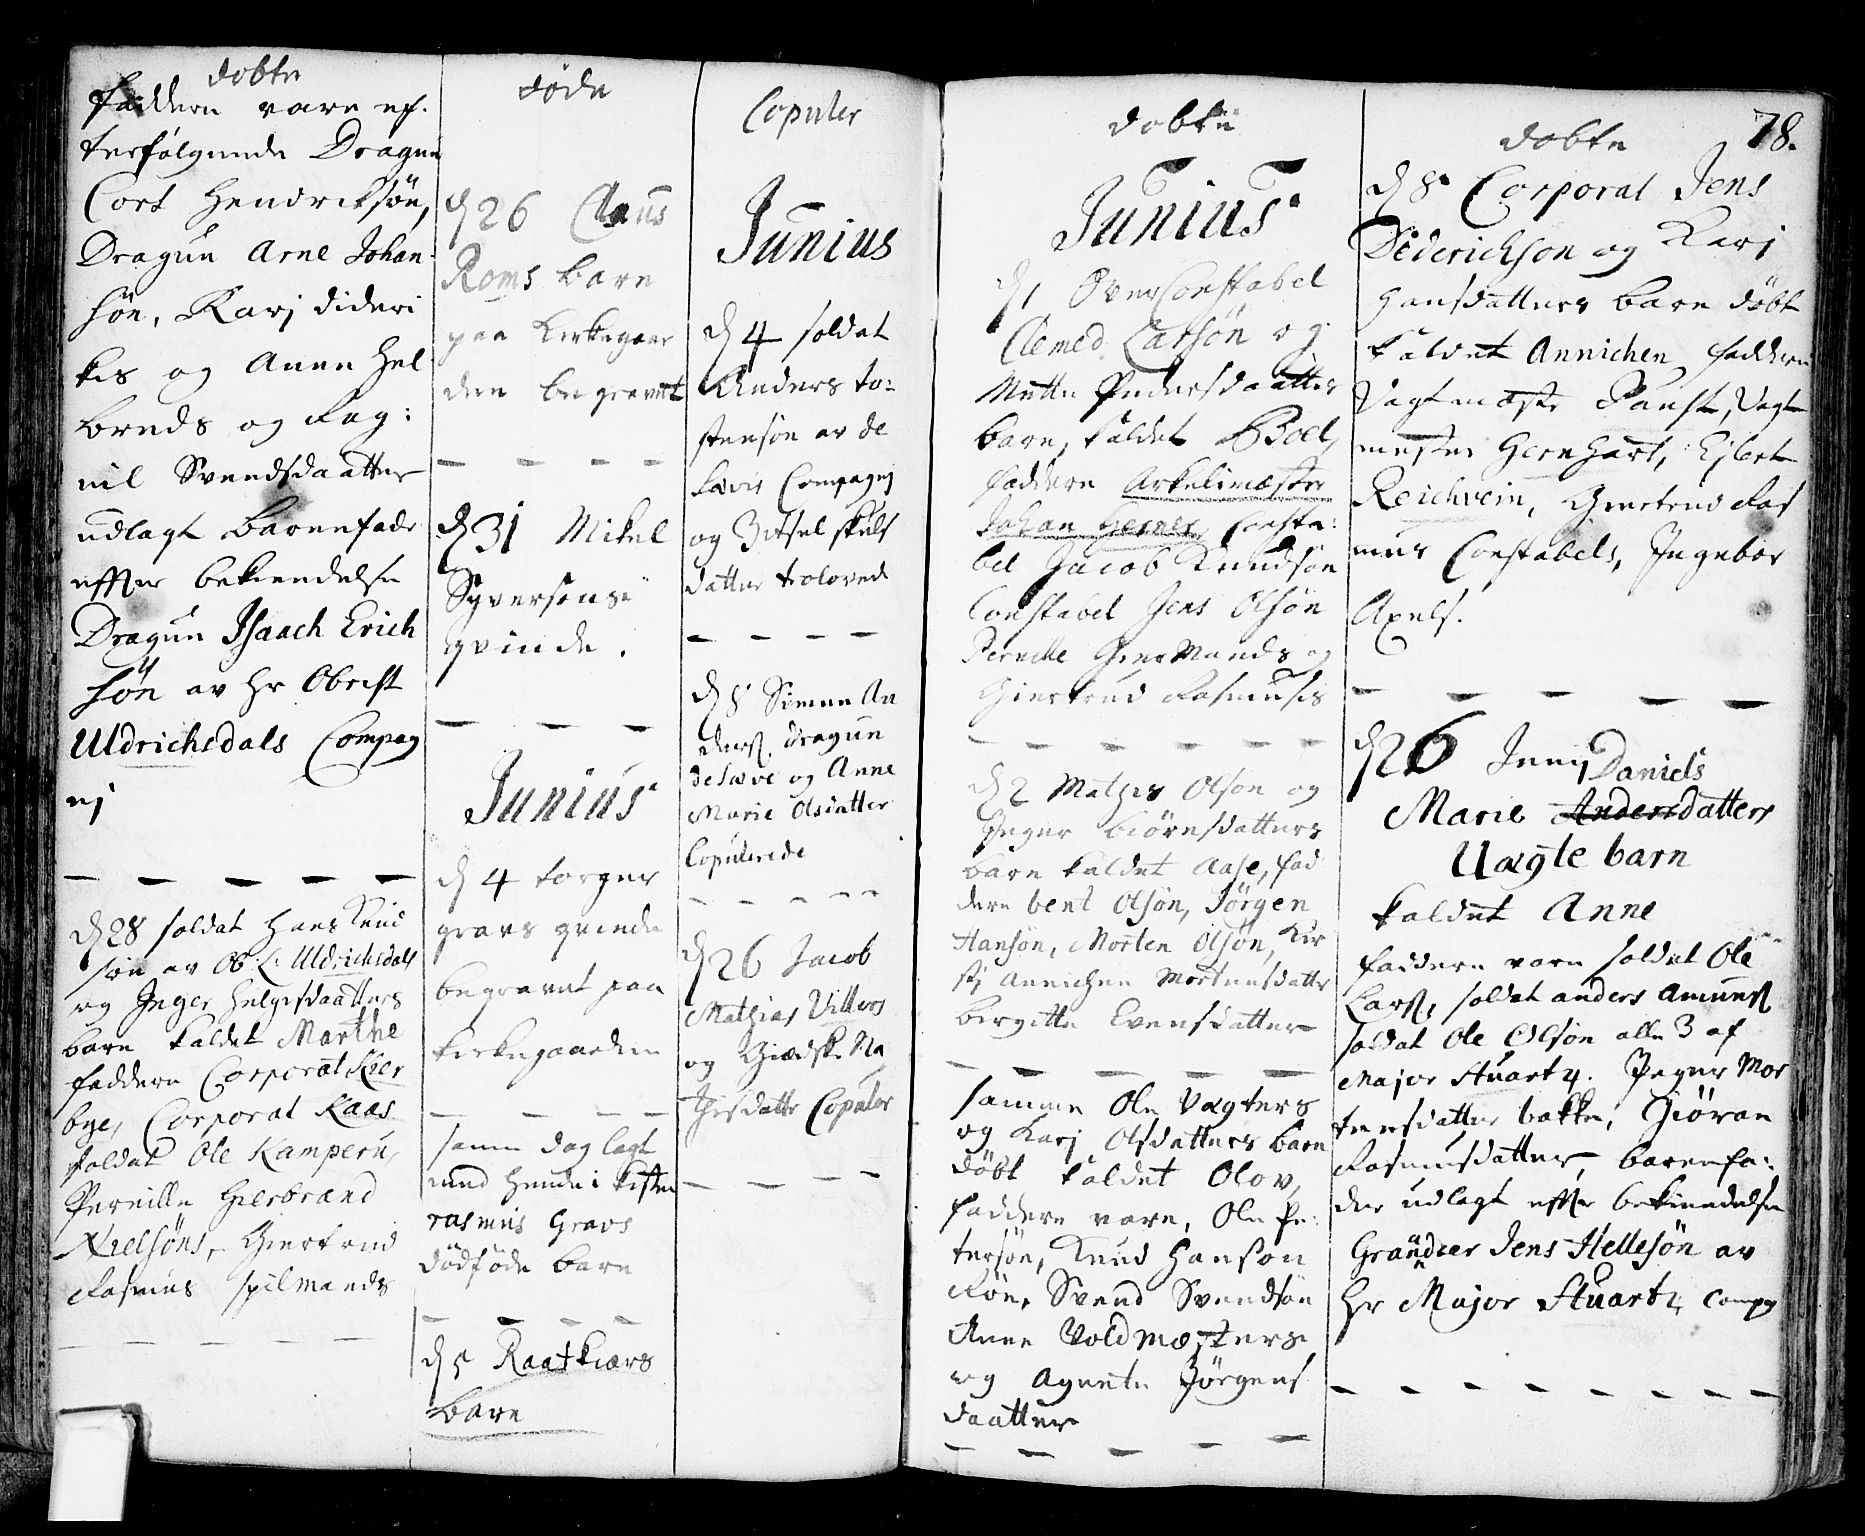 dobte
faddere vare ef-
terfølgende Dragun
Cort Hendriksøn,
Dragun Arne Johan-
søn, Karj dideri
kis og Anne Hel
breds og Rag:
nil Svendsdaatter
udlagt barnefader
effter bekiendelse
Dragun Isaach Erich
søn av Hr Obrist
Uldrichsdals Compag
nj
d 28 soldat Hans Knud
søn av Ob L: Uldrichsdals
og Inger Helgisdaatters
barn kaldet Marthe
faddere Corporal Kier
bye, Corporal Kaas
soldat Ole Kamperu,
Pernille Giesbrænd
Nielsøns, Giertrud
Rasmus spilmands
døde
d 26 Claus
Roms barn
paa Kirkegaar
den begravet
d 31 Mikel
Syversøns
qvinde.
Junius
d 4 torger
gravs qvinde
begravet paa
kirkegaarden
samme dag lagt
ned hende i kisten
rasmus Gravs
dødføde barn
d 5 Raatkiærs
barn
Copuler
Junius
d 4 soldat
Anders to-
stensøn av de
Sævis Compagnj
og Zitsel skels
datter troloved
d 8 Simen An
ders. dragun
de Sæve og Anne
Marie Olsdatter
Copulerede
d 26 Jacob
Mathias Villers
og Giædske Ma
thisdatter Copuler
dobte
Junius
d 1 Over Constabel
Clemed Larsøn og
Mette Pedersdaatters
barn, kaldet Boel,
faddere Arkelimæster
Johan Gerner, Consta-
bel Jacob Knudsøn
Constabel Jens Olsøn
Pernille Giermands og
Giertrud Rasmusis
d 2 Mathis Olsøn og
Inger biørnsdatters
barn kaldet Aase, fad
dere bent Olsøn, Jørgen
Hansøn, Morten Olsøn, Kir
stj Annichen Mortensdatter
birgitte Evensdatter
samme Ole Vagters
og Karj Olsdatters barn
døbt kaldet Olov,
faddere vare, Ole Pe
tersøn, Knud Hanson
Røn, Svend Svendsøn
Anne Voldmæsters
og Agnete Jørgens
daatter
78.
dobte
d 8 Corporal Jens
Dederichson og Karj
Hansdatters barn døbt
kaldet Annichen faddere
Vagtmæster Paust, Vagt
mester Gernhart, Ejlert
Reichvein, Giertrud Ras
mus Constabels, Ingebor
Axels.
d 26 Jenj Daniels
Marie Andersdatters
Uægte barn
kaldet Anne
faddere vare soldat Ole
Lars, soldat anders Amuns
soldat Ole Olsøn alle 3 af
Major Stuartz. Inger Mor
tensdatter bakke, Giøran
Rasmusdatter, barnefa-
der udlagt effter bekiendelse
Granadeer Jens Hellesøn av
Hr Major Stuartz Compg